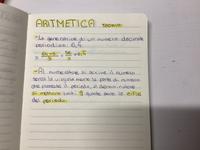 ARITMETICA
- La generatrice di un numero decimale
periodico: 6,4
= 64-6/9 = 58/9 = 6,4
- Al numeratore si scrive il numero
senza la virgola meno la parte di numero
che precede il periodo, a denominatore
si mettono tanti 9 quante sono le cifre
del periodo.